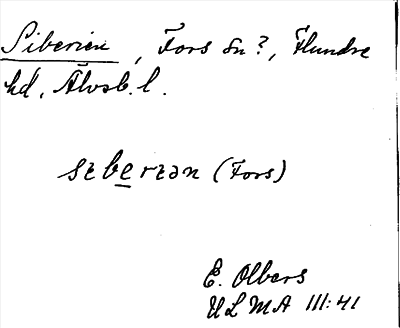 Siberien, Fors sn?, Flundre
hd, Älvsb. l.
sɩbe̲rɩən (Fors)
E. Olbers
ULMA III:41